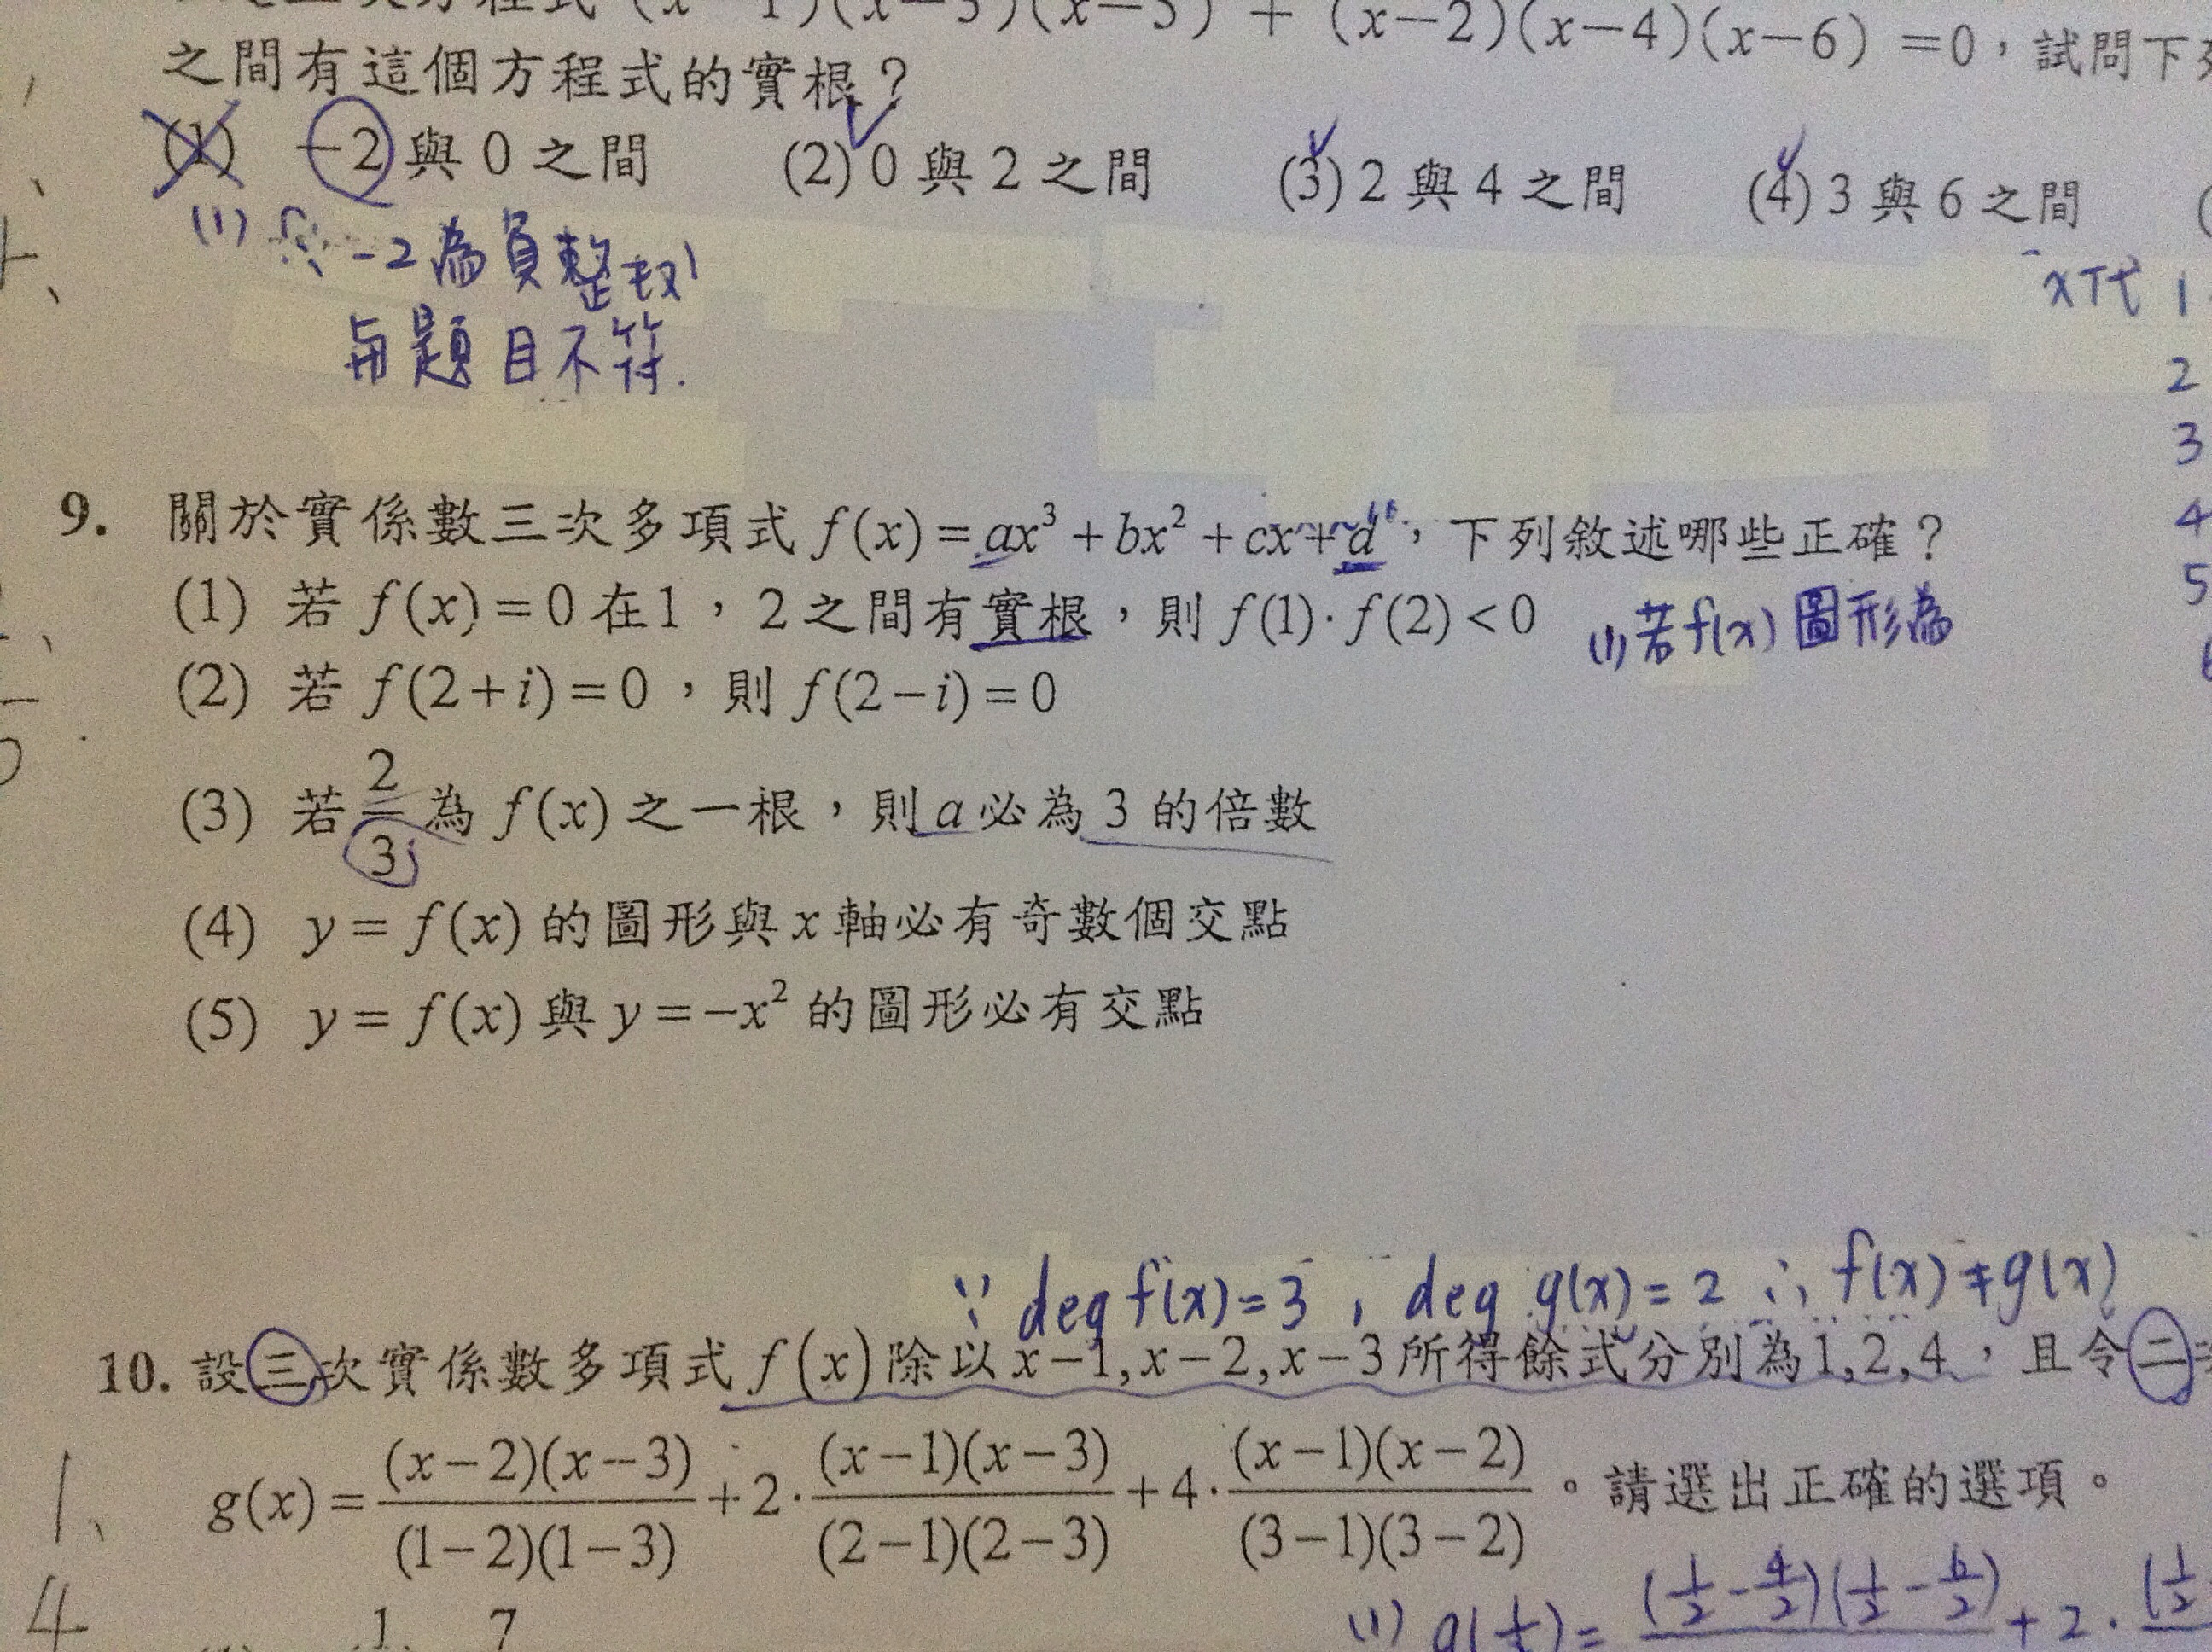 次方程式 (x-1)(x-3)(x-5) + (x-2)(x-4)(x-6) =0，試問下列
之間有這個方程式的實根？
(1) -2 與 0 之間 (2) 0 與 2 之間 (3) 2 與 4 之間 (4) 3 與 6 之間 (
(1) ∵ -2 為負整数
與題目不符.
x代 1
2
3
4
5
9. 關於實係數三次多項式 f(x)=ax³+bx²+cx+d，下列敘述哪些正確？
(1) 若 f(x)=0 在1，2之間有實根，則 f(1)·f(2)<0
(1)若f(x)圖形為
(2) 若 f(2+i)=0，則 f(2-i)=0
(3) 若 2/3 為 f(x) 之一根，則 a 必為 3 的倍數
(4) y=f(x) 的圖形與 x 軸必有奇數個交點
(5) y=f(x) 與 y=-x² 的圖形必有交點
∵ deg f(x)=3，deg g(x)=2 ∴ f(x)≠g(x)
10. 設三次實係數多項式 f(x) 除以 x-1,x-2,x-3 所得餘式分別為1,2,4，且令二
g(x)=(x-2)(x-3)/(1-2)(1-3)+2·(x-1)(x-3)/(2-1)(2-3)+4·(x-1)(x-2)/(3-1)(3-2)。請選出正確的選項。
1、
4
1 7
(1) g(1/2)=(1/2-4/2)(1/2-6/2)+2·(1/2